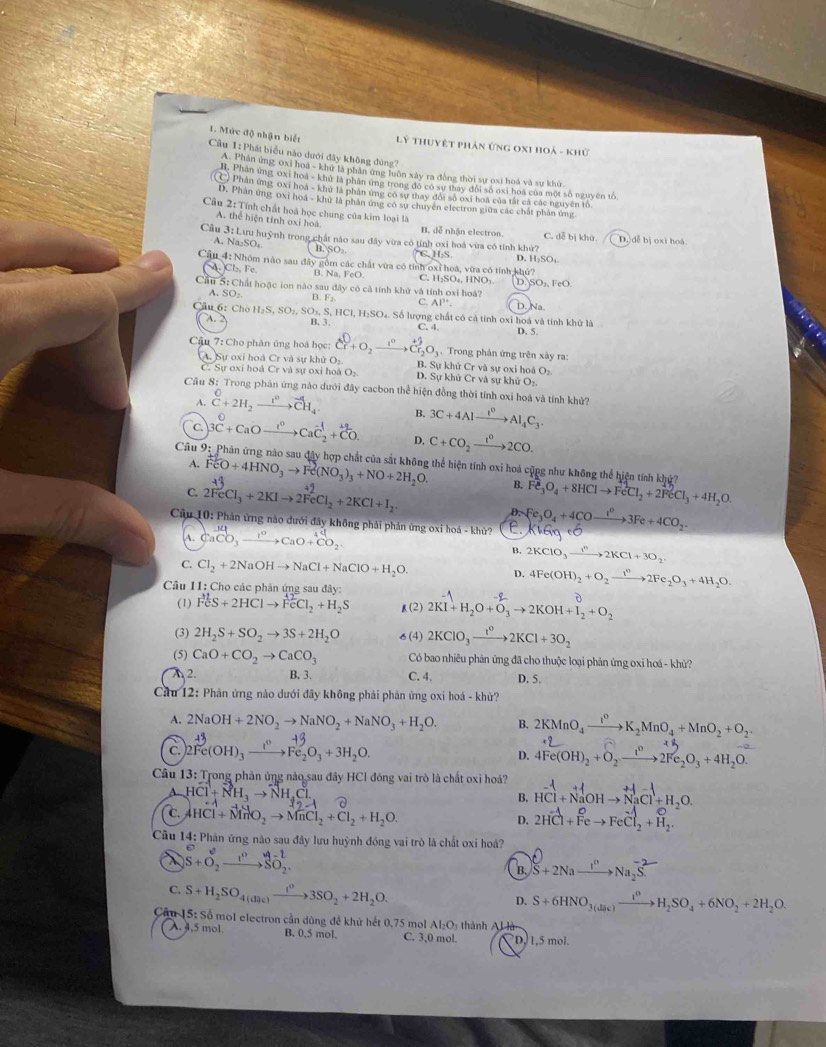 LÝ THUYẾT PHẢN ỨNG OXI HOÁ - KHỬ
1. Mức độ nhận biết
Câu 1: Phát biểu nào dưới đây không đúng?
A. Phản ứng oxi hoá - khử là phản ứng luôn xảy ra đồng thời sự oxi hoá và sự khử.
B. Phản ứng oxi hoá - khử là phản ứng trong đó có sự thay đổi số oxi hoá của một số nguyên tố.
C. Phản ứng oxi hoá - khử là phản ứng có sự thay đổi số oxi hoá của tất cả các nguyên tố.
D. Phản ứng oxi hoá - khử là phản ứng có sự chuyển electron giữa các chất phản ứng.
Câu 2: Tính chất hoá học chung của kim loại là
A. thể hiện tính oxi hoá. B. dễ nhận electron. C. dễ bị khử. D. dễ bị oxi hoá.
Câu 3: Lưu huỳnh trong chất nào sau đây vừa có tính oxi hoá vừa có tính khử?
A. Na₂SO₄. B. SO₂. C. H₂S. D. H₂SO₄.
Câu 4: Nhóm nào sau đây gồm các chất vừa có tính oxi hoá, vừa có tính khử?
A. Cl₂, Fe. B. Na, FeO. C. H₂SO₄, HNO₃. D. SO₂, FeO.
Câu 5: Chất hoặc ion nào sau đây có cả tính khử và tính oxi hoá?
A. SO₂. B. F₂. C. Al³⁺. D. Na.
Câu 6: Cho H₂S, SO₂, SO₃, S, HCl, H₂SO₄. Số lượng chất có cả tính oxi hoá và tính khử là
A. 2. B. 3. C. 4. D. 5.
Câu 7: Cho phản ứng hoá học: Cr + O₂ —t⁰→ Cr₂O₃. Trong phản ứng trên xảy ra:
A. Sự oxi hoá Cr và sự khử O₂. B. Sự khử Cr và sự oxi hoá O₂.
C. Sự oxi hoá Cr và sự oxi hoá O₂. D. Sự khử Cr và sự khử O₂.
Câu 8: Trong phản ứng nào dưới đây cacbon thể hiện đồng thời tính oxi hoá và tính khử?
A. C + 2H₂ —t⁰→ CH₄. B. 3C + 4Al —t⁰→ Al₄C₃.
C. 3C + CaO —t⁰→ CaC₂ + CO. D. C + CO₂ —t⁰→ 2CO.
Câu 9: Phản ứng nào sau đây hợp chất của sắt không thể hiện tính oxi hoá cũng như không thể hiện tính khử?
A. FeO + 4HNO₃ → Fe(NO₃)₃ + NO + 2H₂O. B. Fe₃O₄ + 8HCl → FeCl₂ + 2FeCl₃ + 4H₂O.
C. 2FeCl₃ + 2KI → 2FeCl₂ + 2KCl + I₂. D. Fe₃O₄ + 4CO —t⁰→ 3Fe + 4CO₂.
Câu 10: Phản ứng nào dưới đây không phải phản ứng oxi hoá - khử? E. Không có
A. CaCO₃ —t⁰→ CaO + CO₂. B. 2KClO₃ —t⁰→ 2KCl + 3O₂.
C. Cl₂ + 2NaOH → NaCl + NaClO + H₂O. D. 4Fe(OH)₂ + O₂ —t⁰→ 2Fe₂O₃ + 4H₂O.
Câu 11: Cho các phản ứng sau đây:
(1) FeS + 2HCl → FeCl₂ + H₂S (2) 2KI + H₂O + O₃ → 2KOH + I₂ + O₂
(3) 2H₂S + SO₂ → 3S + 2H₂O (4) 2KClO₃ —t⁰→ 2KCl + 3O₂
(5) CaO + CO₂ → CaCO₃ Có bao nhiêu phản ứng đã cho thuộc loại phản ứng oxi hoá - khử?
A. 2. B. 3. C. 4. D. 5.
Câu 12: Phản ứng nào dưới đây không phải phản ứng oxi hoá - khử?
A. 2NaOH + 2NO₂ → NaNO₂ + NaNO₃ + H₂O. B. 2KMnO₄ —t⁰→ K₂MnO₄ + MnO₂ + O₂.
C. 2Fe(OH)₃ —t⁰→ Fe₂O₃ + 3H₂O. D. 4Fe(OH)₂ + O₂ —t⁰→ 2Fe₂O₃ + 4H₂O.
Câu 13: Trong phản ứng nào sau đây HCl đóng vai trò là chất oxi hoá?
A. HCl + NH₃ → NH₄Cl. B. HCl + NaOH → NaCl + H₂O.
C. 4HCl + MnO₂ → MnCl₂ + Cl₂ + H₂O. D. 2HCl + Fe → FeCl₂ + H₂.
Câu 14: Phản ứng nào sau đây lưu huỳnh đóng vai trò là chất oxi hoá?
A. S + O₂ —t⁰→ SO₂. B. S + 2Na —t⁰→ Na₂S.
C. S + H₂SO₄(đặc) —t⁰→ 3SO₂ + 2H₂O. D. S + 6HNO₃(đặc) —t⁰→ H₂SO₄ + 6NO₂ + 2H₂O.
Câu 15: Số mol electron cần dùng để khử hết 0,75 mol Al₂O₃ thành Al là
A. 4,5 mol. B. 0,5 mol. C. 3,0 mol. D. 1,5 mol.